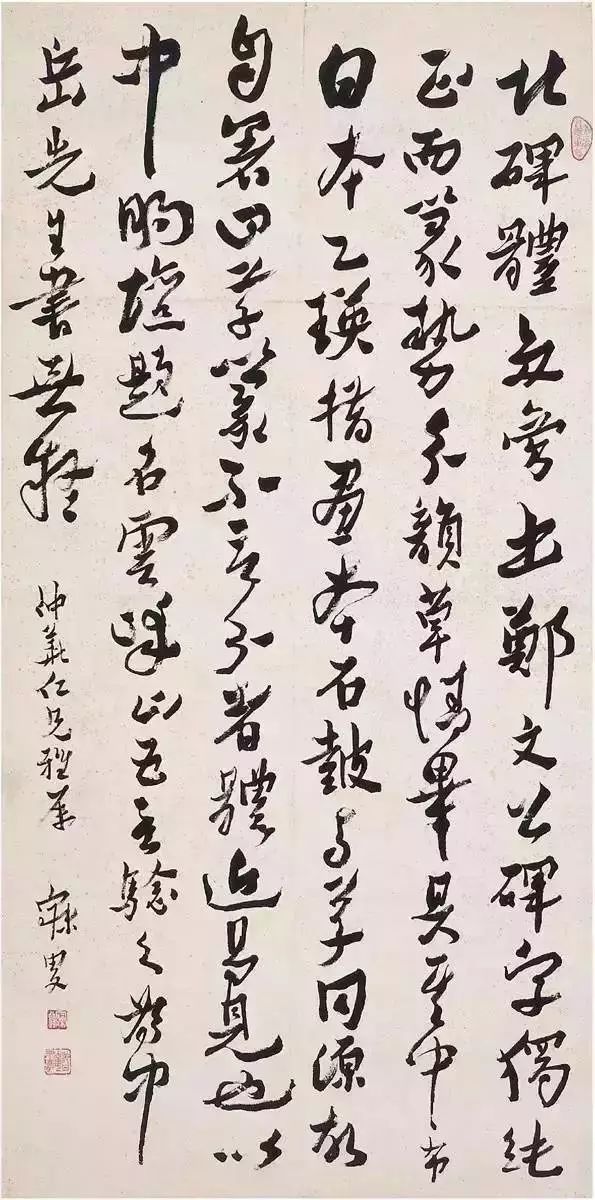 北碑體多旁出鄭文公碑字獨純
正而篆勢分韻草情畢具其中布
白本乙瑛措畫本石鼓與草同源故
自署曰草篆不言分者體近易見也以
中明壇題名雲峰山五言驗之為中
岳先生書無疑
仁兄雅屬 寐叟